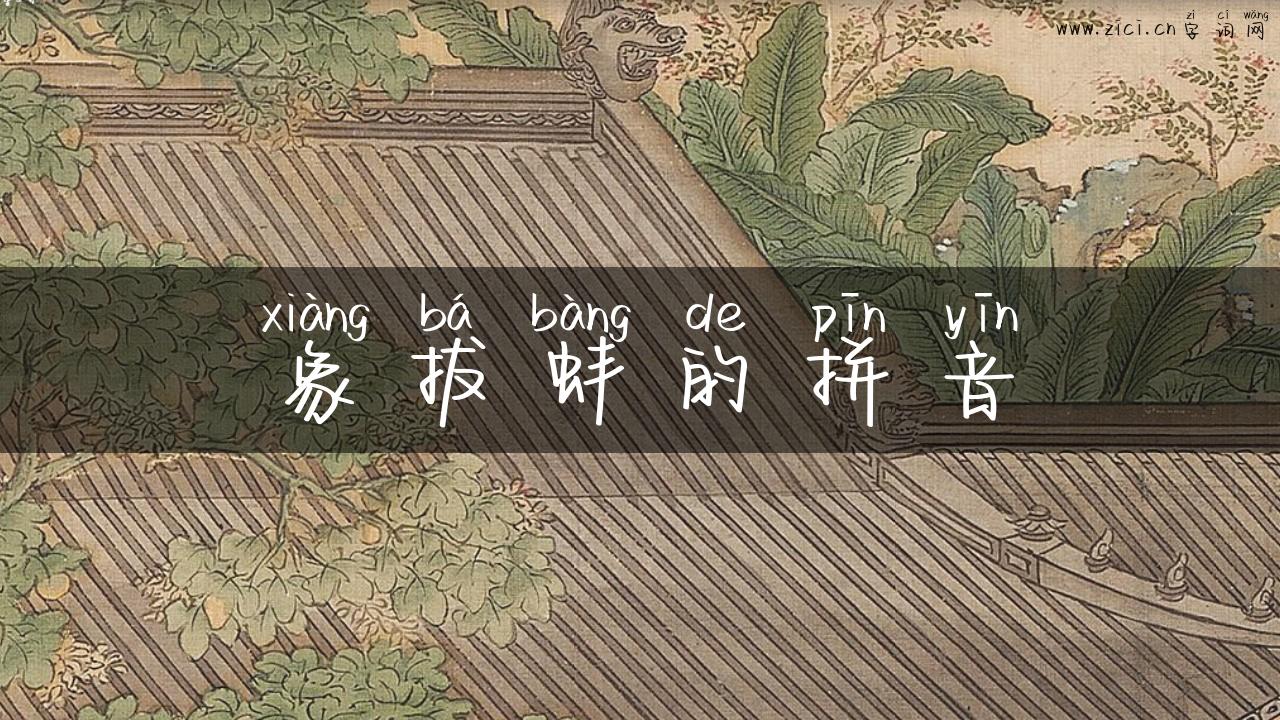 zì cí wǎng
www.zici.cn 字词网
xiàng bá bàng de pīn yīn
象拔蚌的拼音